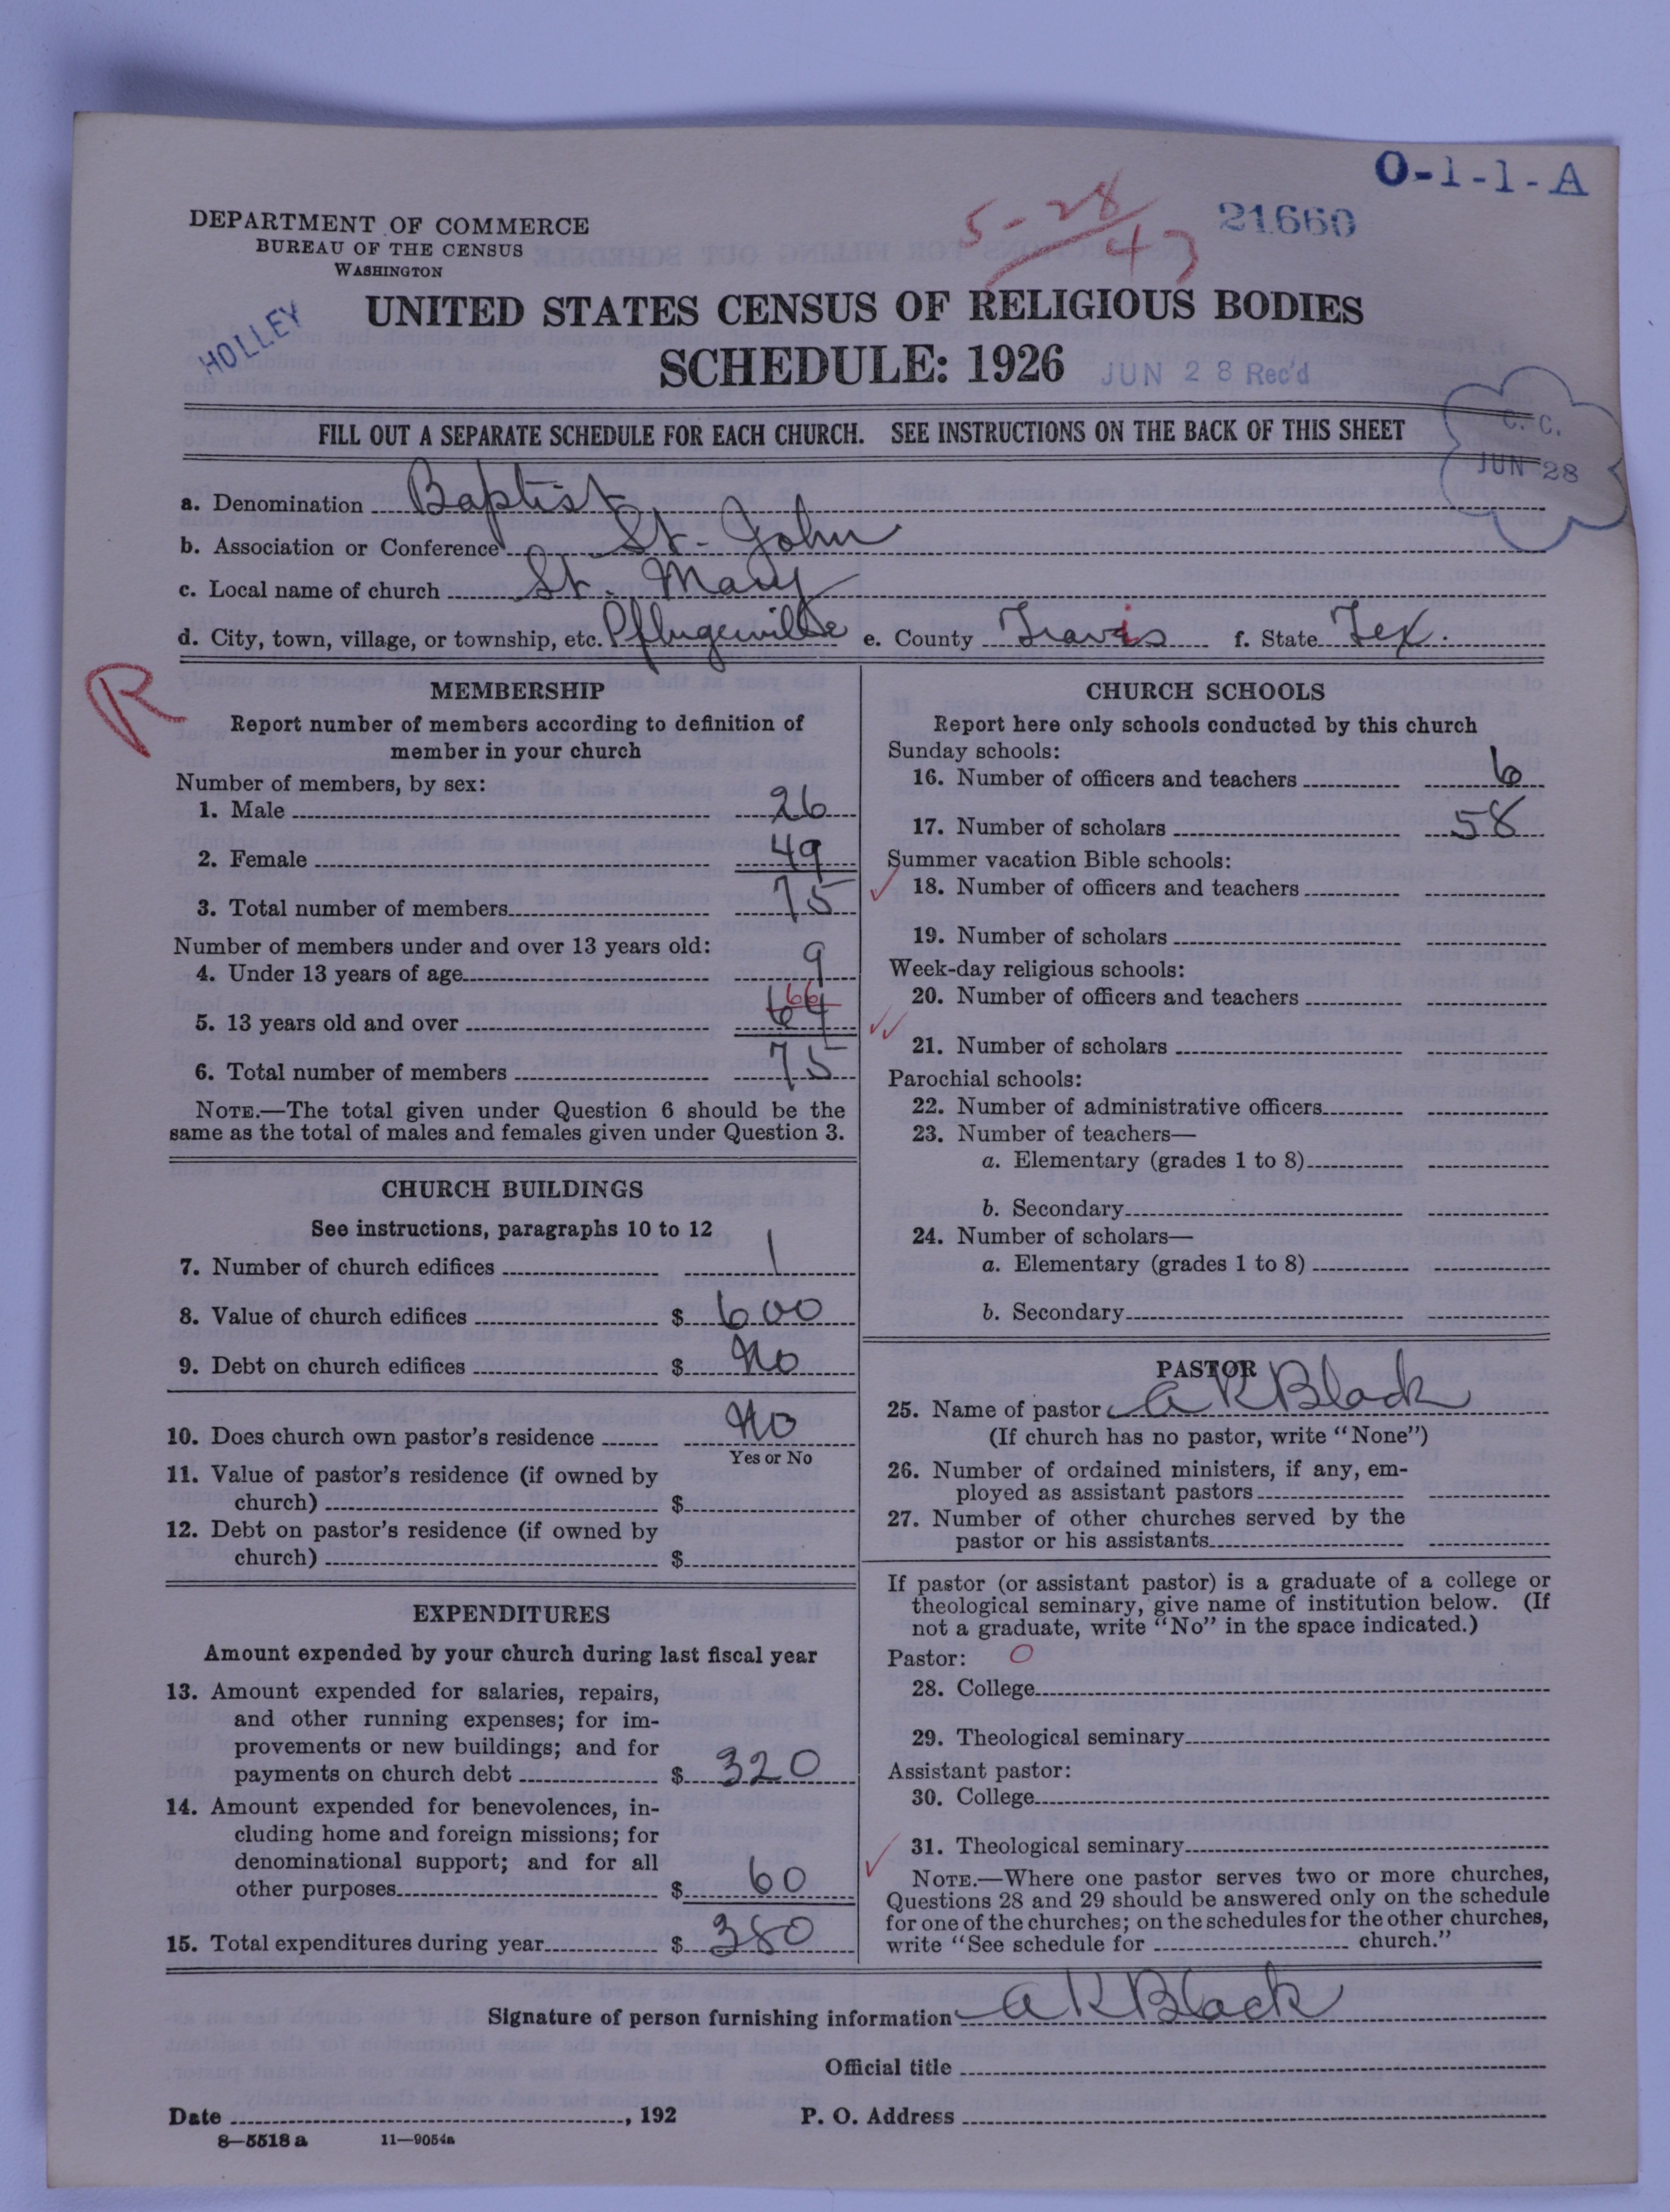 O-1-1-A
5-28/47
21660
DEPARTMENT OF COMMERCE
BUREAU OF THE CENSUS
WASHINGTON
HOLLEY
UNITED STATES CENSUS OF RELIGIOUS BODIES
SCHEDULE: 1926
JUN 28 Rec'd
FILL OUT A SEPARATE SCHEDULE FOR EACH CHURCH. SEE INSTRUCTIONS ON THE BACK OF THIS SHEET
C. C.
JUN 28
a. Denomination Baptist
b. Association or Conference St. John
c. Local name of church St. Mary
d. City, town, village, or township, etc. Pflugerville e. County Travis f. State Tex.
R
MEMBERSHIP
Report number of members according to definition of
member in your church
Number of members, by sex:
1. Male 26
2. Female 49
3. Total number of members 75
Number of members under and over 13 years old:
4. Under 13 years of age 9
66
5. 13 years old and over 64
6. Total number of members 75
NOTE.—The total given under Question 6 should be the
same as the total of males and females given under Question 3.
CHURCH BUILDINGS
See instructions, paragraphs 10 to 12
7. Number of church edifices 1
8. Value of church edifices $ 600
9. Debt on church edifices $ No
10. Does church own pastor's residence No
Yes or No
11. Value of pastor's residence (if owned by
church) $
12. Debt on pastor's residence (if owned by
church) $
EXPENDITURES
Amount expended by your church during last fiscal year
13. Amount expended for salaries, repairs,
and other running expenses; for im-
provements or new buildings; and for
payments on church debt $ 320
14. Amount expended for benevolences, in-
cluding home and foreign missions; for
denominational support; and for all
other purposes $ 60
15. Total expenditures during year $ 380
CHURCH SCHOOLS
Report here only schools conducted by this church
Sunday schools:
16. Number of officers and teachers 6
17. Number of scholars 58
Summer vacation Bible schools:
18. Number of officers and teachers
19. Number of scholars
Week-day religious schools:
20. Number of officers and teachers
21. Number of scholars
Parochial schools:
22. Number of administrative officers
23. Number of teachers—
a. Elementary (grades 1 to 8)
b. Secondary
24. Number of scholars—
a. Elementary (grades 1 to 8)
b. Secondary
PASTOR
25. Name of pastor A K Black
(If church has no pastor, write "None")
26. Number of ordained ministers, if any, em-
ployed as assistant pastors
27. Number of other churches served by the
pastor or his assistants
If pastor (or assistant pastor) is a graduate of a college or
theological seminary, give name of institution below. (If
not a graduate, write "No" in the space indicated.)
Pastor: O
28. College
29. Theological seminary
Assistant pastor:
30. College
31. Theological seminary
NOTE.—Where one pastor serves two or more churches,
Questions 28 and 29 should be answered only on the schedule
for one of the churches; on the schedules for the other churches,
write "See schedule for church."
Signature of person furnishing information A K Black
Official title
Date , 192 P. O. Address
8—5518 a 11—9054a